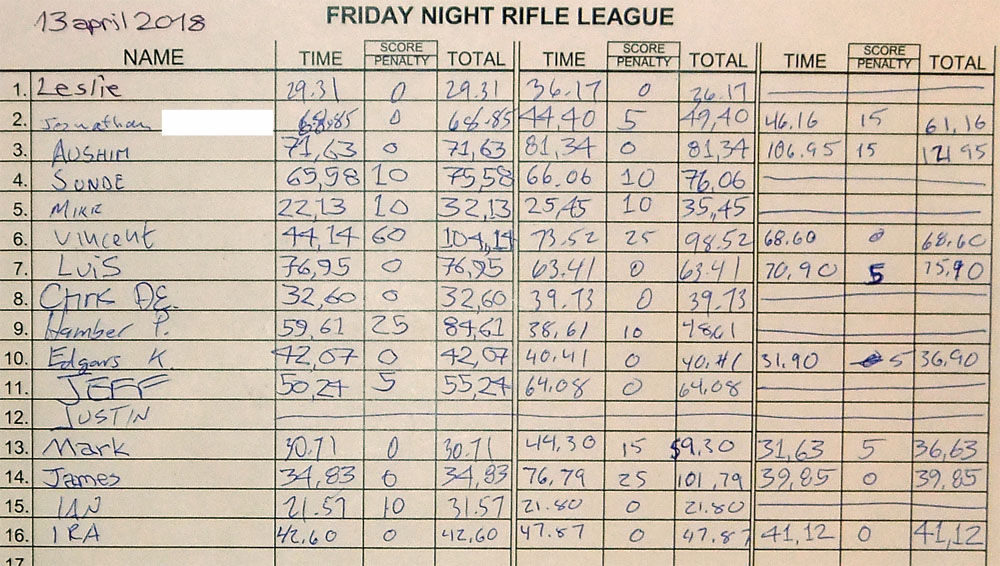 13 april 2018 FRIDAY NIGHT RIFLE LEAGUE
NAME TIME SCORE PENALTY TOTAL TIME SCORE PENALTY TOTAL TIME SCORE PENALTY TOTAL
1. Leslie 29.31 0 29.31 36.17 0 36.17
2. Jonathan 68.85 0 68.85 44,40 5 49,40 46.16 15 61,16
3. AUSHIM 71,63 0 71,63 81,34 0 81,34 106.95 15 121 95
4. SUNDE 65,58 10 75,58 66.06 10 76.06
5. MIKE 22,13 10 32,13 25,45 10 35,45
6. Vincent 44,14 60 104,14 73.52 25 98.52 68.60 0 68.60
7. LUiS 76,95 0 76,95 63.41 0 63.41 70,90 5 75,90
8. Chris DE. 32,60 0 32,60 39.73 0 39.73
9. Hamber P. 59,61 25 84,61 38,61 10 48,61
10. Edgars K 42,07 0 42,07 40.41 0 40.41 31.90 5 36,90
11. JEFF 50,24 5 55,24 64.08 0 64.08
12. JUSTIN
13. Mark 30.71 0 30.71 44.30 15 59.30 31,63 5 36,63
14. James 34,83 0 34,83 76,79 25 101,79 39,85 0 39,85
15. IAN 21.57 10 31.57 21.80 0 21.80
16. IRA 42.60 0 42,60 47.87 0 47.87 41,12 0 41,12
17.